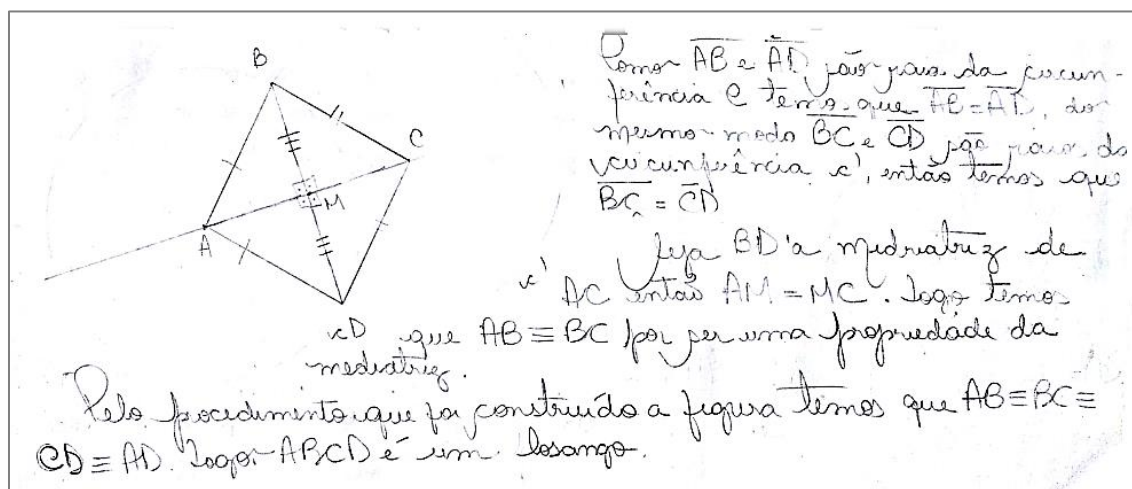 B
C
M
A
D
Como AB e AD são raios da circun-
ferência C temos que AB = AD, do
mesmo modo BC e CD são raios da
circunferência c', então temos que
BC = CD
Seja BD a mediatriz de
AC então AM = MC. Logo temos
que AB ≡ BC por ser uma propriedade da
mediatriz.
Pelo procedimento que foi construído a figura temos que AB ≡ BC ≡
CD ≡ AD. Logo ABCD é um losango.